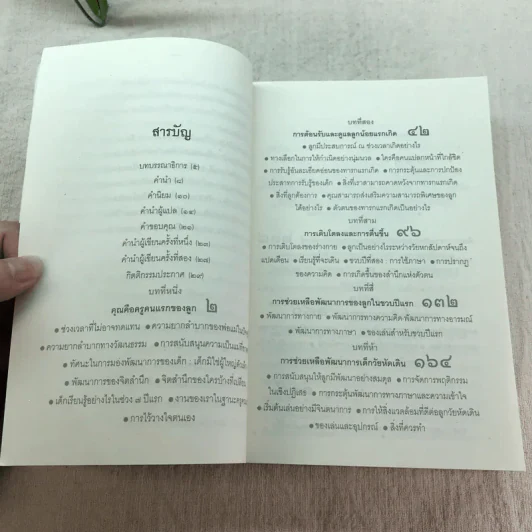 สารบัญ
บทบรรณาธิการ (๕)
คำนำ (๘)
คำนิยม (๑๐)
คำนำผู้แปล (๑๔)
คำขอบคุณ (๒๑)
คำนำผู้เขียนครั้งที่หนึ่ง (๒๓)
คำนำผู้เขียนครั้งที่สอง (๒๗)
กิตติกรรมประกาศ (๒๙)
บทที่หนึ่ง
คุณคือครูคนแรกของลูก ๒
● ช่วงเวลาที่ไม่อาจทดแทน ● ความยากลำบากของพ่อแม่ใน
● ความยากลำบากทางวัฒนธรรม ● การสนับสนุนความเป็น
● ทัศนะในการมองพัฒนาการของเด็ก : เด็กมิใช่ผู้ใหญ่ตัว
● พัฒนาการของจิตสำนึก ● จิตสำนึกของใครบ้างที่
● เด็กเรียนรู้อย่างไรในช่วง ๗ ปีแรก ● งานของเราในฐานะ
● การไว้วางใจตนเอง
บทที่สอง
การต้อนรับและดูแลลูกน้อยแรกเกิด ๔๒
● ลูกมีประสบการณ์ ณ ช่วงเวลาเกิดอย่างไร
● ทางเลือกในการให้กำเนิดอย่างนุ่มนวล ● ใครคือคนแปลกหน้าที่ใกล้ชิด
● การรับรู้อันละเอียดอ่อนของทารกแรกเกิด ● การกระตุ้นและการปกป้อง
ประสาทการรับรู้ของเด็ก ● สิ่งที่เราสามารถคาดหวังจากทารกแรกเกิด
● สิ่งที่ลูกต้องการ ● คุณสามารถส่งเสริมความสามารถพิเศษของลูก
ได้อย่างไร ● ตัวตนของทารกแรกเกิดเป็นอย่างไร
บทที่สาม
การเติบโตลงและการตื่นขึ้น ๙๖
● การเติบโตลงของร่างกาย ● ลูกเป็นอย่างไรระหว่างวัยหกสัปดาห์จนถึง
แปดเดือน ● เรียนรู้ที่จะเดิน ● ขวบปีที่สอง การใช้ภาษา ● การปรากฏ
ของความคิด ● การเกิดขึ้นของสำนึกแห่งตัวตน
บทที่สี่
การช่วยเหลือพัฒนาการของลูกในขวบปีแรก ๑๓๒
● พัฒนาการทางกาย ● พัฒนาการทางความคิด พัฒนาการทางอารมณ์
● พัฒนาการทางภาษา ● ของเล่นสำหรับขวบปีแรก
บทที่ห้า
การช่วยเหลือพัฒนาการเด็กวัยหัดเดิน ๑๖๔
● การสนับสนุนให้ลูกมีพัฒนาอย่างสมดุล ● การจัดการพฤติกรรม
ในเชิงปฏิเสธ ● การกระตุ้นพัฒนาการทางภาษาและความเข้าใจ
● เริ่มต้นเล่นอย่างมีจินตนาการ ● การให้สิ่งแวดล้อมที่ดีต่อลูกวัยหัดเดิน
● ของเล่นและอุปกรณ์ ● สิ่งที่ควรทำ